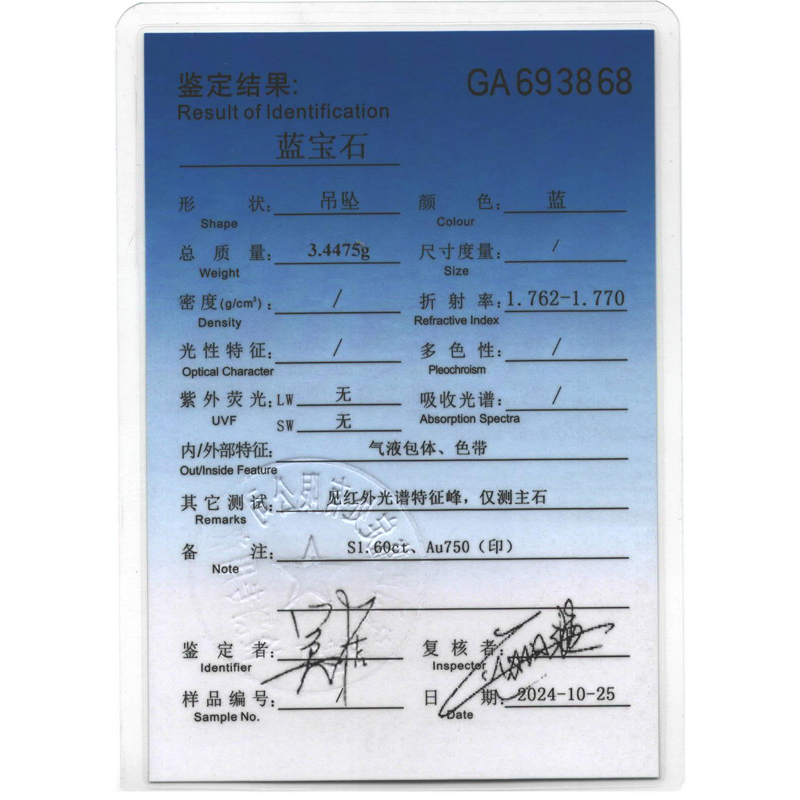 鉴定结果: GA693868
Result of Identification
蓝宝石
形 状: 吊坠 颜 色: 蓝
Shape Colour
总 质 量: 3.4475g 尺寸度量: /
Weight Size
密 度(g/cm³): / 折 射 率: 1.762-1.770
Density Refractive Index
光性特征: / 多 色 性: /
Optical Character Pleochroism
紫外荧光: LW 无 吸收光谱: /
UVF SW 无 Absorption Spectra
内/外部特征: 气液包体、色带
Out/Inside Feature
其它测试: 见红外光谱特征峰，仅测主石
Remarks
备 注: S1.60ct、Au750（印）
Note
鉴 定 者: 复 核 者:
Identifier Inspector
样品编号: / 日 期: 2024-10-25
Sample No. Date